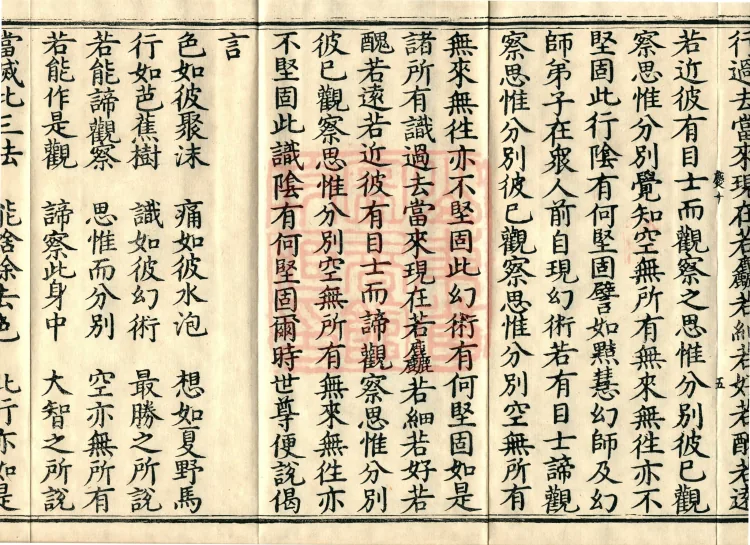 行過去當來現在若麤若細若好若醜若遠
慶十 五
若近彼有目士而觀察之思惟分別彼已觀
察思惟分別覺知空無所有無來無徃亦不
堅固此行陰有何堅固譬如黠慧幻師及幻
師弟子在衆人前自現幻術若有目士諦觀
察思惟分別彼已觀察思惟分別空無所有
無來無徃亦不堅固此幻術有何堅固如是
諸所有識過去當來現在若麤若細若好若
醜若遠若近彼有目士而諦觀察思惟分別
彼已觀察思惟分別空無所有無來無徃亦
不堅固此識陰有何堅固爾時世尊便說偈
言
色如彼聚沫 痛如彼水泡 想如夏野馬
行如芭蕉樹 識如彼幻術 最勝之所說
若能諦觀察 思惟而分別 空亦無所有
若能作是觀 諦察此身中 大智之所說
當滅此三去 能捨除去色 此行亦如是